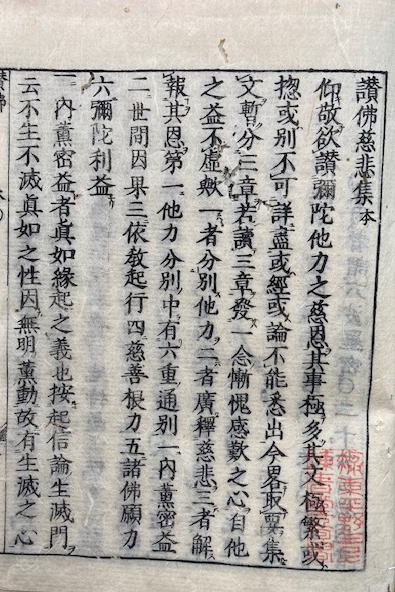 讃佛慈悲集本
仰敬欲讃彌陀他力之慈恩其事極多其文極繁或
揔或別不可詳盡或經或論不能悉出今畧取要集
文暫分三章若讀三章發一念慚愧感歎之心自他
之益不虛歟一者分別他力二者廣釋慈悲三者解
報其恩第一他力分別中有六重通別一內薫密益
二世間因果三依教起行四慈善根力五諸佛願力
六彌陀利益
一內薫密益者真如緣起之義也按起信論生滅門
云不生不滅真如之性因無明薫動故有生滅之心